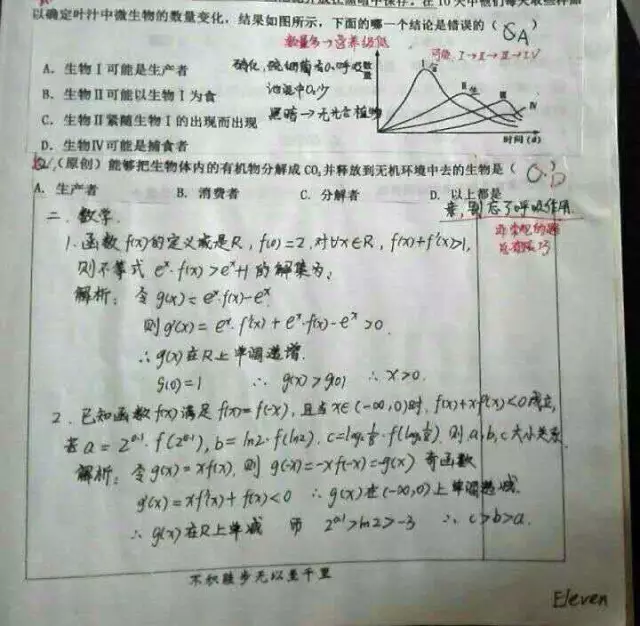 以确定叶汁中微生物的数量变化，结果如图所示，下面的哪一个结论是错误的（ A ）
A．生物Ⅰ可能是生产者
B．生物Ⅱ可能以生物Ⅰ为食
C．生物Ⅱ紧随生物Ⅰ的出现而出现
D．生物Ⅳ可能是捕食者
可能 Ⅰ→Ⅱ→Ⅲ→Ⅳ
数量
Ⅰ
Ⅱ
Ⅲ
Ⅳ
时间(d)
（原创）能够把生物体内的有机物分解成CO₂并释放到无机环境中去的生物是（ D ）
A．生产者 B．消费者 C．分解者 D．以上都是
亲，别忘了呼吸作用
二、数学.
1. 函数f(x)的定义域是R，f(0)=2，对∀x∈R，f(x)+f'(x)>1，
则不等式 eˣ·f(x)>eˣ+1 的解集为：
解析：令g(x)=eˣ·f(x)-eˣ
则g'(x)=eˣ·f'(x)+eˣ·f(x)-eˣ>0
∴g(x)在R上单调递增.
g(0)=1 ∴ g(x)>g(0) ∴x>0.
2. 已知函数f(x)满足f(x)=f(-x)，且当x∈(-∞,0)时，f(x)+xf'(x)<0成立，
若a=2^0.1·f(2^0.1)，b=ln2·f(ln2)，c=log₂⅛·f(log₂⅛)，则a,b,c大小关系
解析：令g(x)=xf(x)，则g(-x)=-xf(-x)=-g(x) 奇函数
g'(x)=xf'(x)+f(x)<0 ∴g(x)在(-∞,0)上单调递减.
∴g(x)在R上单减 而 2^0.1>ln2>-3 ∴c>b>a.
不积跬步无以至千里
Eleven